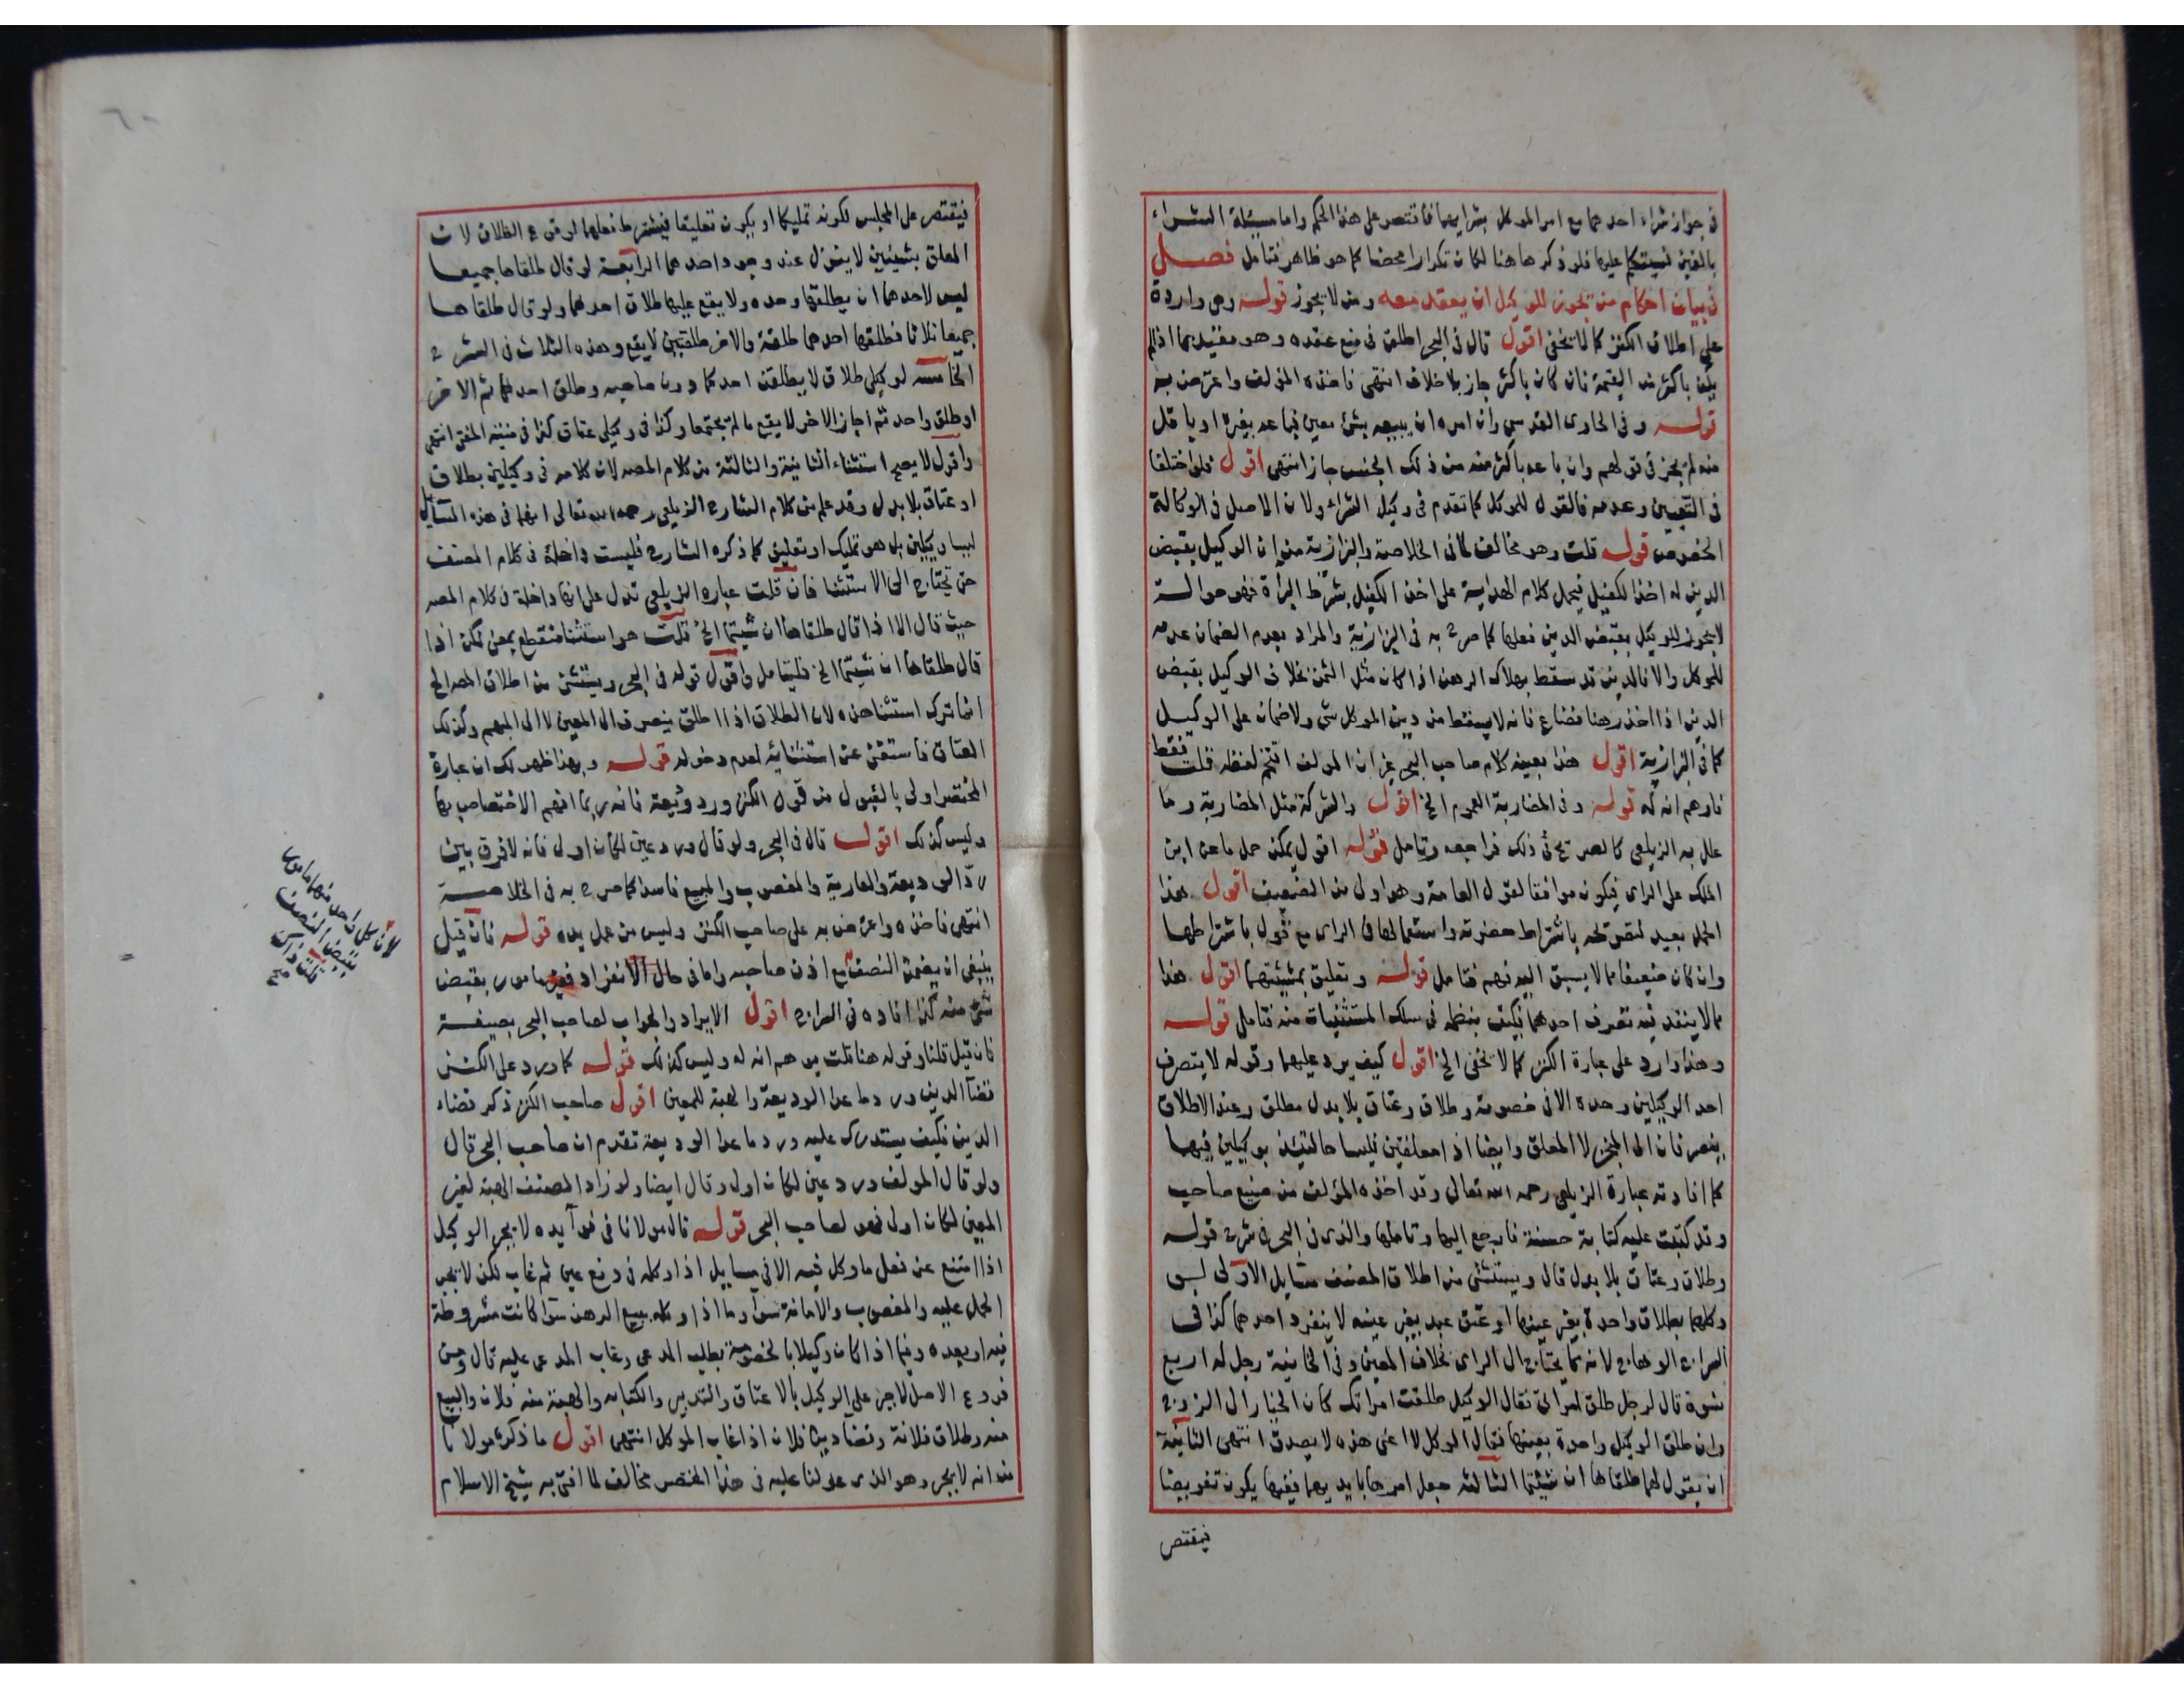 في جواز شراء احدهما مع امر الموكل بشرايهما فاقتصر على هذا الحكم واما مسئلة الشراء
بالغبن فسيتكلم عليها فلو ذكرها هنا لكان تكرارا محضا كما هو ظاهر فتامل فصل
في بيان احكام من يجوز للوكيل ان يعقد معه ومن لا يجوز قوله وهي واردة
على اطلاق الكنز كما لا يخفى اقول قال في البحر اطلق في منع عقده وهو مقيد بما اذا لم
يكن باكثر من القيمة فان كان باكثر جاز بلا خلاف انتهى فاخذه المؤلف واعترض به
قوله وفي الحاوى القدسي وان امره ان يبيعه بشئ معين فباعه بغيره او باقل
منه لم يجز في قولهم وان باعه باكثر منه من ذلك الجنس جاز انتهى اقول فلو اختلفا
في التعيين وعدمه فالقول للموكل كما تقدم في وكيل الشراء ولان الاصل في الوكالة
الخصوص قوله قلت وهو مخالف لما في الخلاصة والبزازية من ان الوكيل بقبض
الدين له اخذ الكفيل فيحمل كلام الهداية على اخذ الكفيل بشرط البراة فهو حوالة
لا يجوز للوكيل بقبض الدين فعلها كما صرح به في البزازية والمراد بعدم الضمان عدمه
للموكل والا فالدين قد سقط بهلاك الرهن اذا كان مثل الثمن بخلاف الوكيل بقبض
الدين اذا اخذ رهنا فضاع فانه لا يسقط من دين الموكل شئ ولا ضمان على الوكيل
كما في البزازية اقول هذا بعينه كلام صاحب البحر غير ان المؤلف اقتحم لفظه قلت فقط
فاوهم انه له قوله وفي المضاربة العموم الخ اقول والشركة مثل المضاربة وما
علل به الزيلعي كالصريح في ذلك فراجعه وتامل قوله اقول يمكن حمل ما عن ابن
الملك على الراى فيكون موافقا لقول العامة وهو اولى من التضعيف اقول هذا
الحمل بعيد لتصريحه باشتراط حضرته واستعمالها في الراى مع قول باشتراطها
وان كان ضعيفا مما لا يسبق اليه فهم فتامل قوله وتعليق بمشيئتهما اقول هذا
مما لا ينفد فيه تصرف احدهما فكيف ينظمه في سلك المستثنيات منه فتامل قوله
وهذا وارد على عبارة الكنز كما لا يخفى الخ اقول كيف يرد عليهما وقوله لا يتصرف
احد الوكيلين وحده الا في خصومة وطلاق وعتاق بلا بدل مطلق وعند الاطلاق
ينصرفان الى المنجز لا المعلق وايضا اذا معلقين فليسا حالتئذ بوكيلين فيها
كما افادته عبارة الزيلعي رحمه الله تعالى وقد اخذه المؤلف من صنيع صاحب
وقد كتبت عليه كتابة حسنة فارجع اليها وتاملها والذى في البحر في شرح قوله
وطلاق وعتاق بلا بدل قال ويستثنى من اطلاق المصنف مسايل الاولى لو
وكلهما بطلاق واحدة بغير عينها او عتق عبد بغير عينه لا ينفرد احدهما كذا في
السراج الوهاج لانه مما يحتاج الى الراى بخلاف المعين وفي الخانية رجل له اربع
نسوة قال لرجل طلق امراتى فقال الوكيل طلقت امراتك كان الخيار الى الزوج
وان طلق الوكيل واحدة بعينها فقال الموكل لا اعنى هذه لا يصدق انتهى الثانية
ان يقول لهما طلقاها ان شيئتما الثالثة جعل امرها بايديهما ففيها يكون تفويضا
فيقتصر
فيقتصر على المجلس لكونه تمليكا او يكون تعليقا فيشترط فعلهما لوقوع الطلاق لان
المعلق بشيئين لا ينزل عند وجود احدهما الرابعة لو قال طلقاها جميعا
ليس لاحدهما ان يطلقها وحده ولا يقع عليها طلاق احدهما ولو قال طلقاها
جميعا ثلاثا فطلقها احدهما طلقة والاخر طلقتين لا يقع وهذه الثلاث في الشرح
الخامسة لو وكيلى طلاق لا يطلقن احدكما دون صاحبه وطلق احدهما ثم الاخر
او طلق واحد ثم اجاز الاخر لا يقع ما لم يجتمعا وكذا في وكيلى عتاق كذا في منية المفتى انتهى
واقول لا يصح استثناء الثانية والثالثة من كلام المصه لان كلامه في وكيلين بطلاق
او عتاق بلا بدل وقد علم من كلام الشارح الزيلعي رحمه الله تعالى انهما في هذه المسايل
ليسا وكيلين بل هو تمليك او تعليق كما ذكره الشارح فليست داخلة في كلام المصنف
حتى يحتاج الى الاستثنا فان قلت عبارة الزيلعي تدل على انها داخلة في كلام المصه
حيث قال الا اذا قال طلقاها ان شيتما الخ قلت هو استثنا منقطع بمعنى لكن اذا
قال طلقاها ان شيتما الخ فليتامل واقول قوله في البحر ويستثنى من اطلاق المصه الخ
انما ترك استثنا هذه لان الطلاق اذا اطلق ينصرف الى المعين لا الى المبهم وكذلك
العتاق فاستغنى عن استثنائه لعدم دخوله قوله وبهذا ظهر لك ان عبارة
المختصر اولى بالقبول من قول الكنز ورد وديعة فانه ربما افهم الاختصاص بها
وليس كذلك اقول قال في البحر ولو قال ورد عين لكان اولى فانه لا فرق بين
رد الوديعة والعارية والمغصوب والمبيع فاسدا كما صرح به في الخلاصة
انتهى فاخذه واعترض به على صاحب الكنز وليس من عمل يده قوله فان قيل
ينبغي ان يضمن النصف مع اذن صاحبه واما في حال الانفراد فغير مامور بقبض
شئ منه كذا افاده في السراج اقول الايراد والجواب لصاحب البحر بصيغة
فان قيل قلنا وقوله هنا قلت يوهم انه له وليس كذلك قوله كما ورد على الكنز
قضآ الدين ورد ما عدا الوديعة والهبة للمعين اقول صاحب الكنز ذكر قضاء
الدين فكيف يستدرك عليه ورد ما عدا الوديعة تقدم ان صاحب البحر قال
ولو قال المؤلف ورد عين لكان اولى وقال ايضا ولو زاد المصنف الهبة لغير
المعين لكان اولى فهو لصاحب البحر قوله قال مولانا في فوآيده لا يجبر الوكيل
اذا امتنع عن فعل ما وكل فيه الا في مسايل اذا وكله في دفع عين ثم غاب لكن لا يجب
الحمل عليه والمغصوب والامانة سوآ وما اذا وكله ببيع الرهن سوآ كانت مشروطة
فيه او بعده وفيما اذا كان وكيلا بالخصومة بطلب المدعى وغاب المدعى عليه قال ومن
فروع الاصل لا جبر على الوكيل بالاعتاق والتدبير والكتابه والهبة منه فلان والبيع
منه وطلاق فلانة وقضآ دين فلان اذا غاب الموكل انتهى اقول ما ذكره مولانا
من انه لا يجبر وهو الذى عولنا عليه في هذا المختصر مخالف لما افتى به شيخ الاسلام
لان كل واحد منهما مامور
بقبض النصف
قلت ذاك
صح